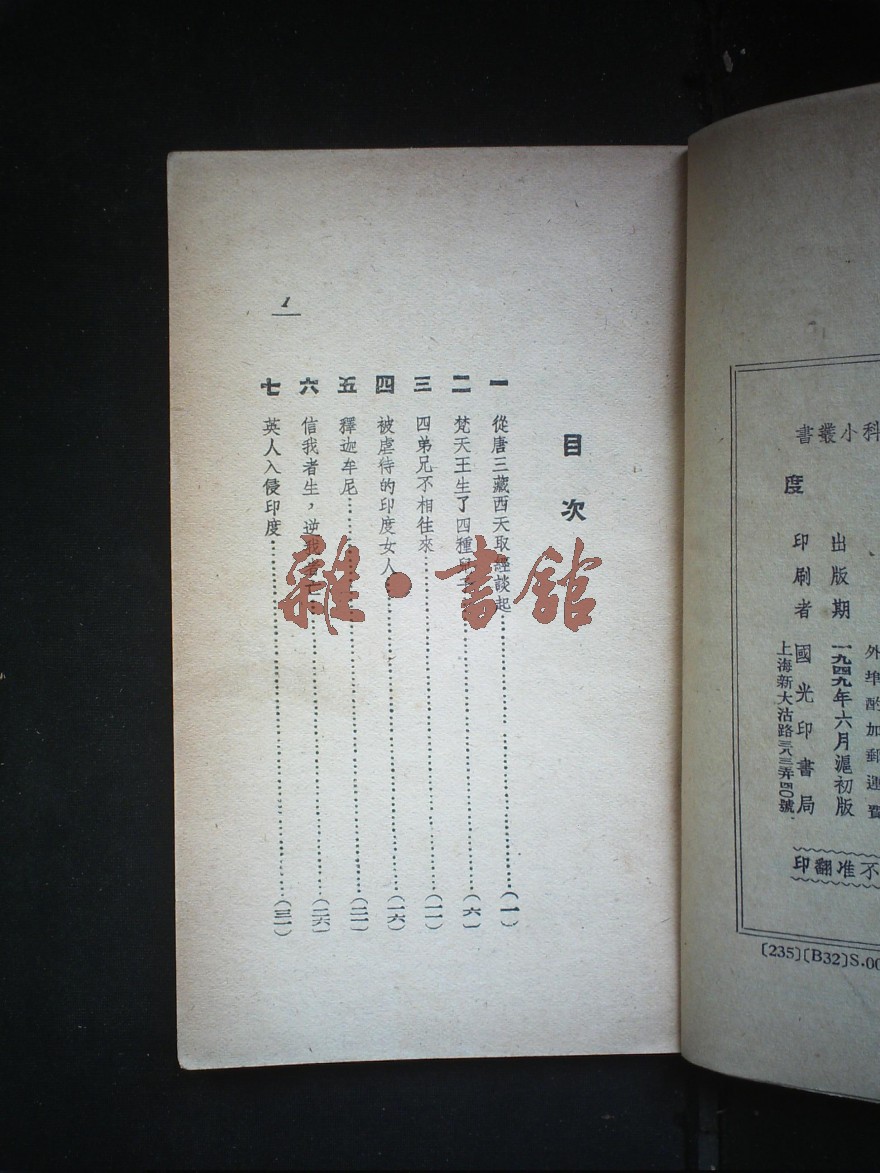 科小叢書
度
外埠酌加郵運費
出版期 一九四九年六月滬初版
印刷者 國光印書局
上海新大沽路三八三弄號
不准翻印
〔235〕〔B32〕S.00
目次
一 從唐三藏西天取經談起……(一)
二 梵天王生了四種……(六)
三 四弟兄不相往來……(一一)
四 被虐待的印度女人……(一六)
五 釋迦牟尼……(二一)
六 信我者生，逆我……(二六)
七 英人入侵印度……(三一)
1
雜·書館